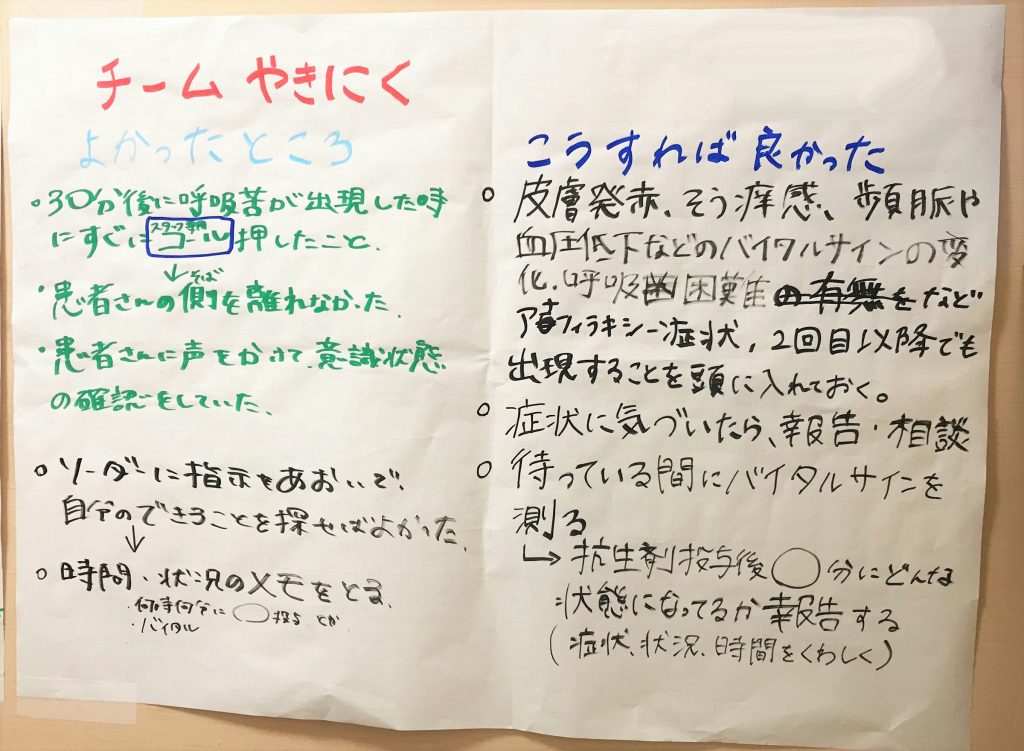 チーム やきにく
よかったところ
・30分後に呼吸苦が出現した時
にすぐに スタッフ専用コール 押したこと、
↓ そば
・患者さんの側を離れなかった、
・患者さんに声をかけて、意識状態
の確認をしていた、
○ リーダーに指示をあおいで、
自分のできることを探せばよかった、
↓
○ 時間・状況のメモをとる、
・何時何分に◯投与 とか
・バイタル
こうすれば 良かった
○ 皮膚発赤、そう痒感、頻脈や
血圧低下などのバイタルサインの変
化、呼吸困難の有無をなど
アナフィラキシー症状、2回目以降でも
出現することを頭に入れておく。
○ 症状に気づいたら、報告・相談
○ 待っている間にバイタルサインを
測る
↳ 抗生剤投与後◯分にどんな
状態になってるか報告する
(症状、状況、時間をくわしく)